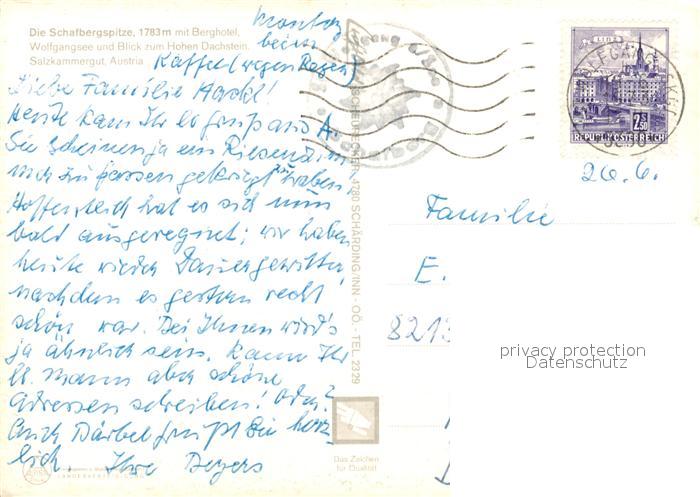 Die Schafbergspitze, 1783 m mit Berghotel,
Wolfgangsee und Blick zum Hohen Dachstein.
Salzkammergut, Austria
beim
Kaffee (wegen Regen)
Liebe Familie
Heute kam Ihr lb. Gruß aus A.
Sie scheinen ja ein
zu haben!
Hoffentlich hat es sich nun
bald ausgeregnet; wir haben
heute wieder Dauergewitter,
nachdem es gestern recht
schön war. Bei Ihnen wird's
ja ähnlich sein. Kann Ihr
lb. Mann aber schöne
Adressen schreiben! Oder?
Auch Bärbel grüßt Sie herz-
lich. Ihre
SCHÄRDING/INN - OÖ. - TEL. 2329
Das Zeichen
für Qualität
LINZ
2.50
REPUBLIK ÖSTERREICH
26.6.
Familie
E.
8213
privacy protection
Datenschutz